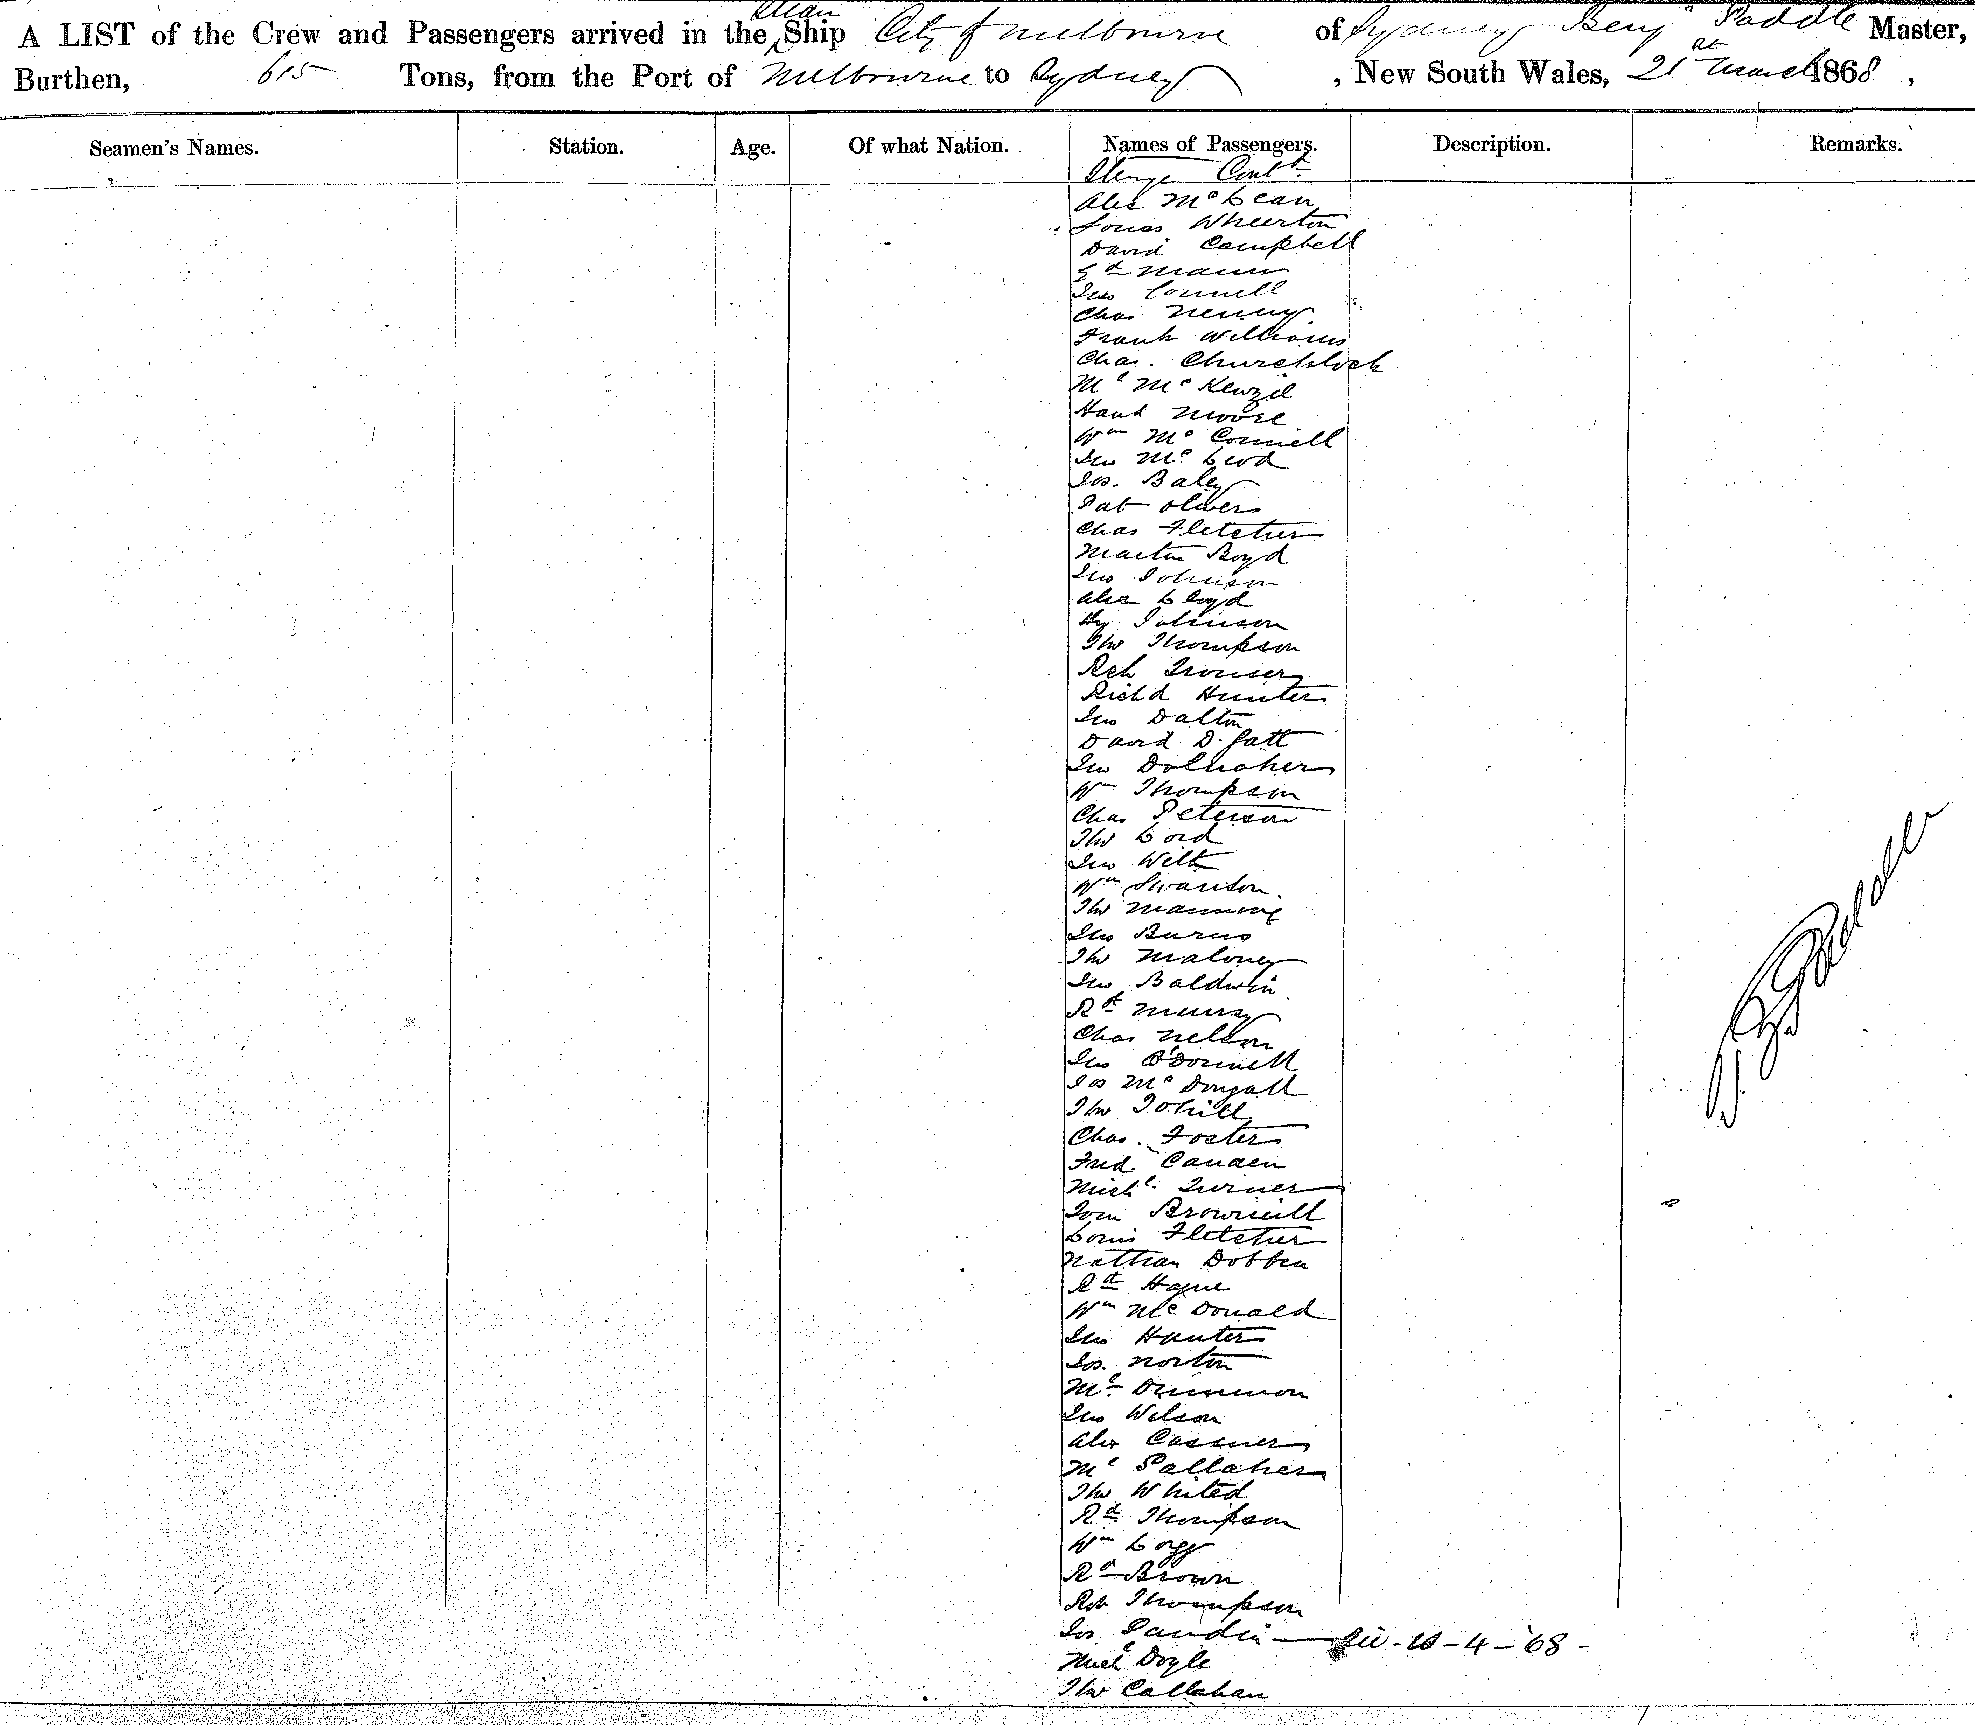 A LIST of the Crew and Passengers arrived in the Steam Ship City of Melbourne of Sydney Benjn Paddle Master,
Burthen, 615 Tons, from the Port of Melbourne to Sydney, New South Wales, 21st March 1868,
Seamen's Names. Station. Age. Of what Nation. Names of Passengers. Description. Remarks.
Steerage Contd
Alex McLean
Jonas Wheerton
David Campbell
Mann
Jno Connell
Chas
Frank Williams
Chas. Churchlock
Ml McKenzie
Hank Moore
Wm McConnell
Jno McLeod
Jos. Baley
Pat Olivers
Chas Fletcher
Martin Boyd
Jno Johnson
Alex Lloyd
Hy Johnson
Thos Thompson
Rch
Richd Hunter
Jno Dalton
David D. Gatt
Jno
Wm Thompson
Chas Peterson
Thos Lord
Jno Wilt
Wm Swanson
Thos Manning
Jno Burns
Thos Maloney
Jno Baldwin
Rt Murray
Chas Nelson
Jno O'Donnell
Jos McDougall
Thos Tohill
Chas. Foster
Fred Camden
Michl. Turner
Tom Brownell
Louis Fletcher
Nathan Dobben
Rd Hayne
Wm McDonald
Jno Hunter
Jos. Norton
Ml Drummon
Jno Wilson
Alex
Ml Gallaher
Thos Whited
Rd Thompson
Wm Logg
Rd Brown
Rob Thompson
Jos. - 4 - '68 -
Michl Doyle
Thos Callahan
B Paddle